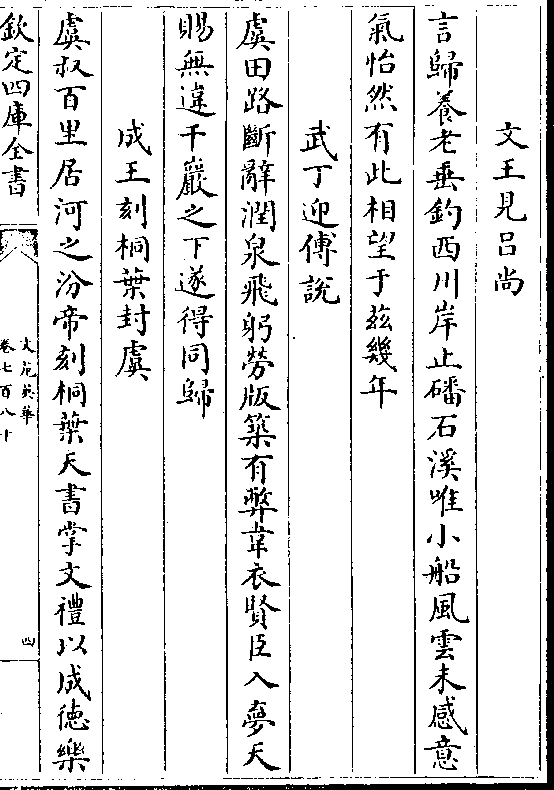 文王見吕尚
言歸養老垂釣西川岸止磻石溪唯小船風雲未感意
氣怡然有此相望于兹幾年
武丁迎傅説
虞田路斷辭潤泉飛躬勞版築有弊韋衣賢臣入夢天
賜無違千巖之下遂得同歸
成王刻桐葉封虞
虞叔百里居河之汾帝刻桐葉天書掌文禮以成德樂
欽定四庫全書
文苑英華
卷七百八十
四